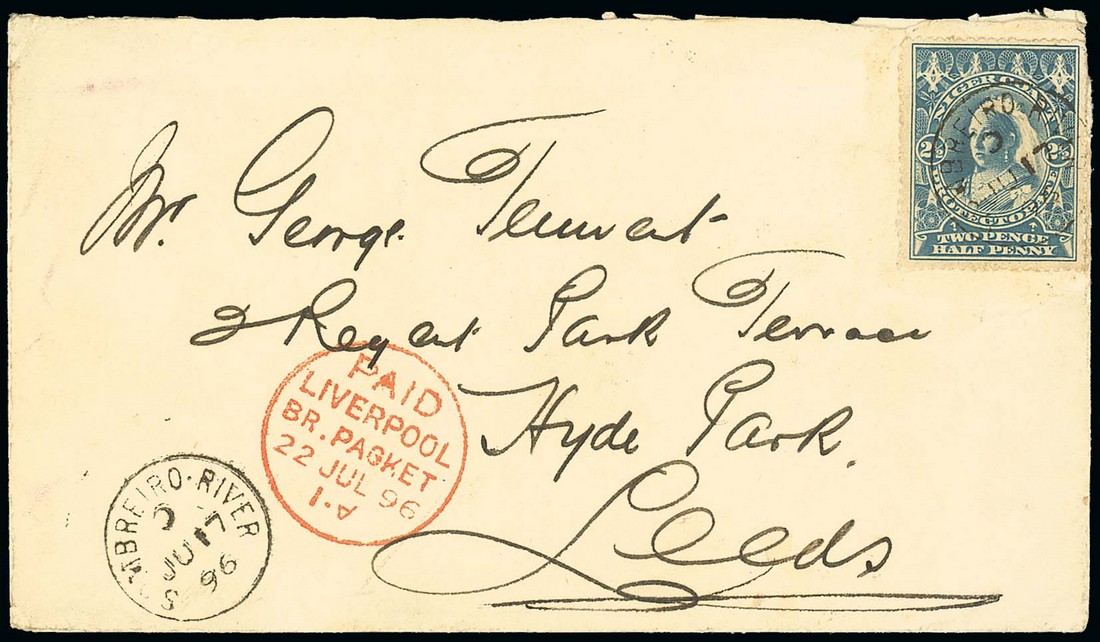 NIGER COAST
PROTECTORATE
2½ 2½
TWO PENCE
HALF PENNY
BREIRO·RIVER
17
Mr. George Tennent
2 Regent Park Terrace
Hyde Park.
Leeds
PAID
LIVERPOOL
BR. PACKET
22 JUL 96
1·A
BREIRO·RIVER
C 17
JU
96